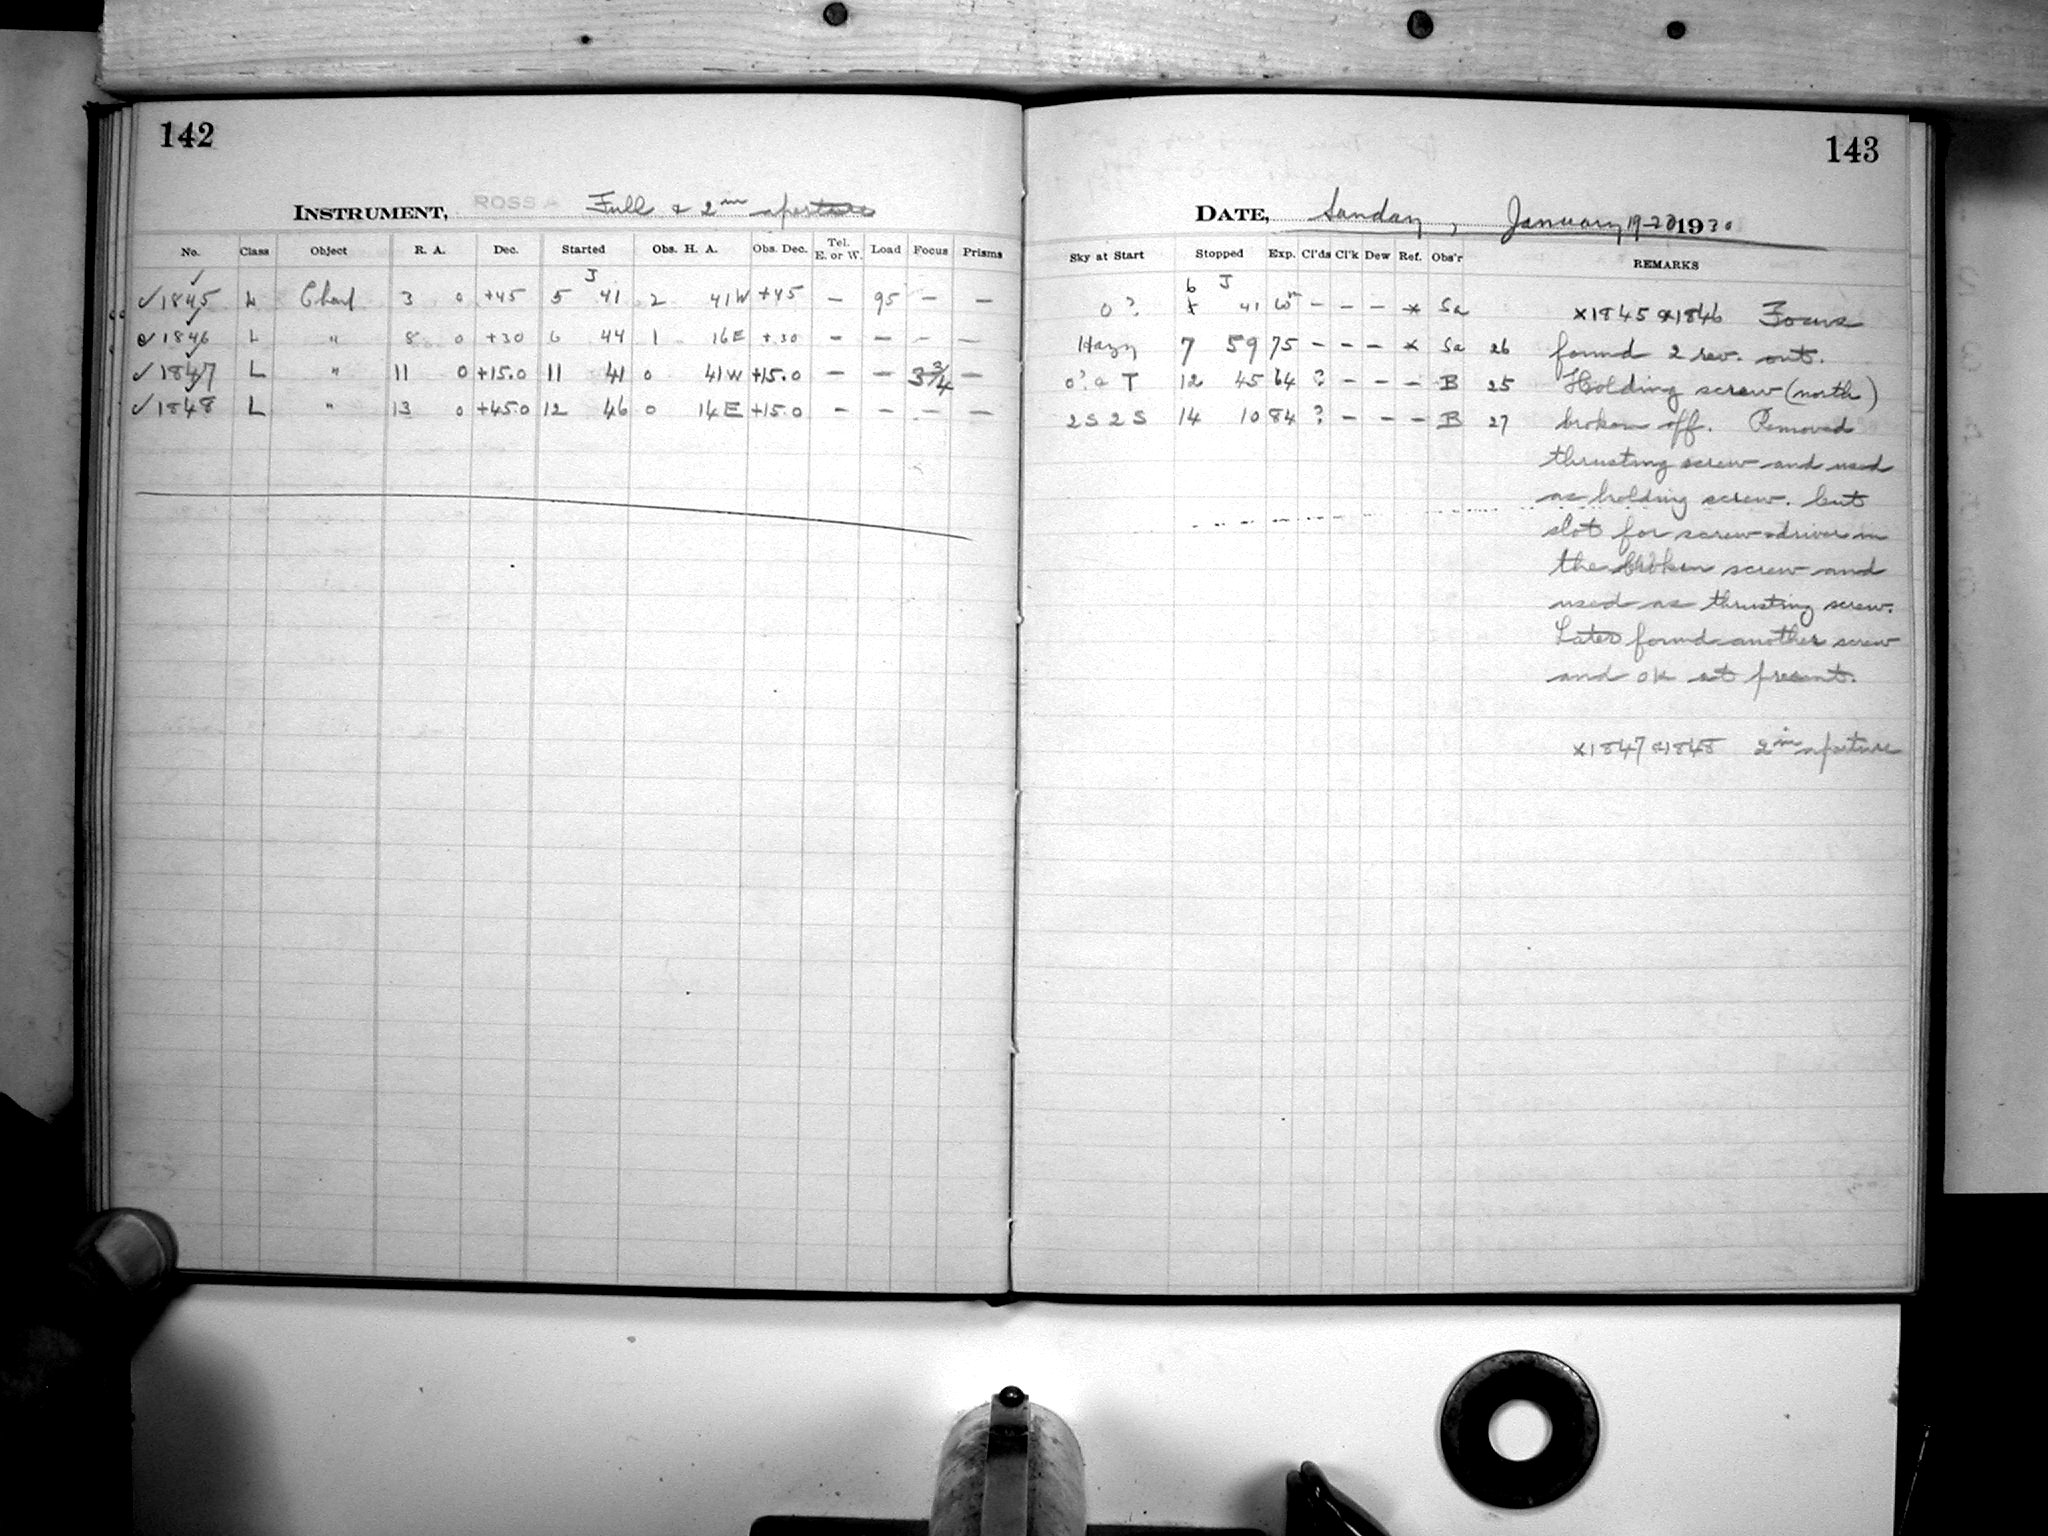 142
INSTRUMENT, ROSS A Full & 2 in aperture
No. Class Object R. A. Dec. Started Obs. H. A. Obs. Dec. Tel. E. or W. Load Focus Prisms
J
✓1845 L Chart 3 0 +45 5 41 2 41W +45 — 95 — —
1846 L " 8 0 +30 6 44 1 16E +30 — — — —
✓1847 L " 11 0 +15.0 11 41 0 41W +15.0 — — 3 3/4 —
✓1848 L " 13 0 +45.0 12 46 0 14E +15.0 — — — —
143
DATE, Sunday, January 19-20 1930
Sky at Start Stopped Exp. Cl'ds Cl'k Dew Ref. Obs'r REMARKS
6 J
0? 41 60m — — — * Sa ×1845 &1846 Focus
Hazy 7 59 75 — — — * Sa 26 found 2 rev. out.
0? a T 12 45 64 ? — — — B 25 Holding screw (north)
2S2S 14 10 84 ? — — — B 27 broken off. Removed
thrusting screw and used
as holding screw. Cut
slot for screw-driver in
the broken screw and
used as thrusting screw.
Later found another screw
and OK at present.
×1847 &1848 2 in aperture